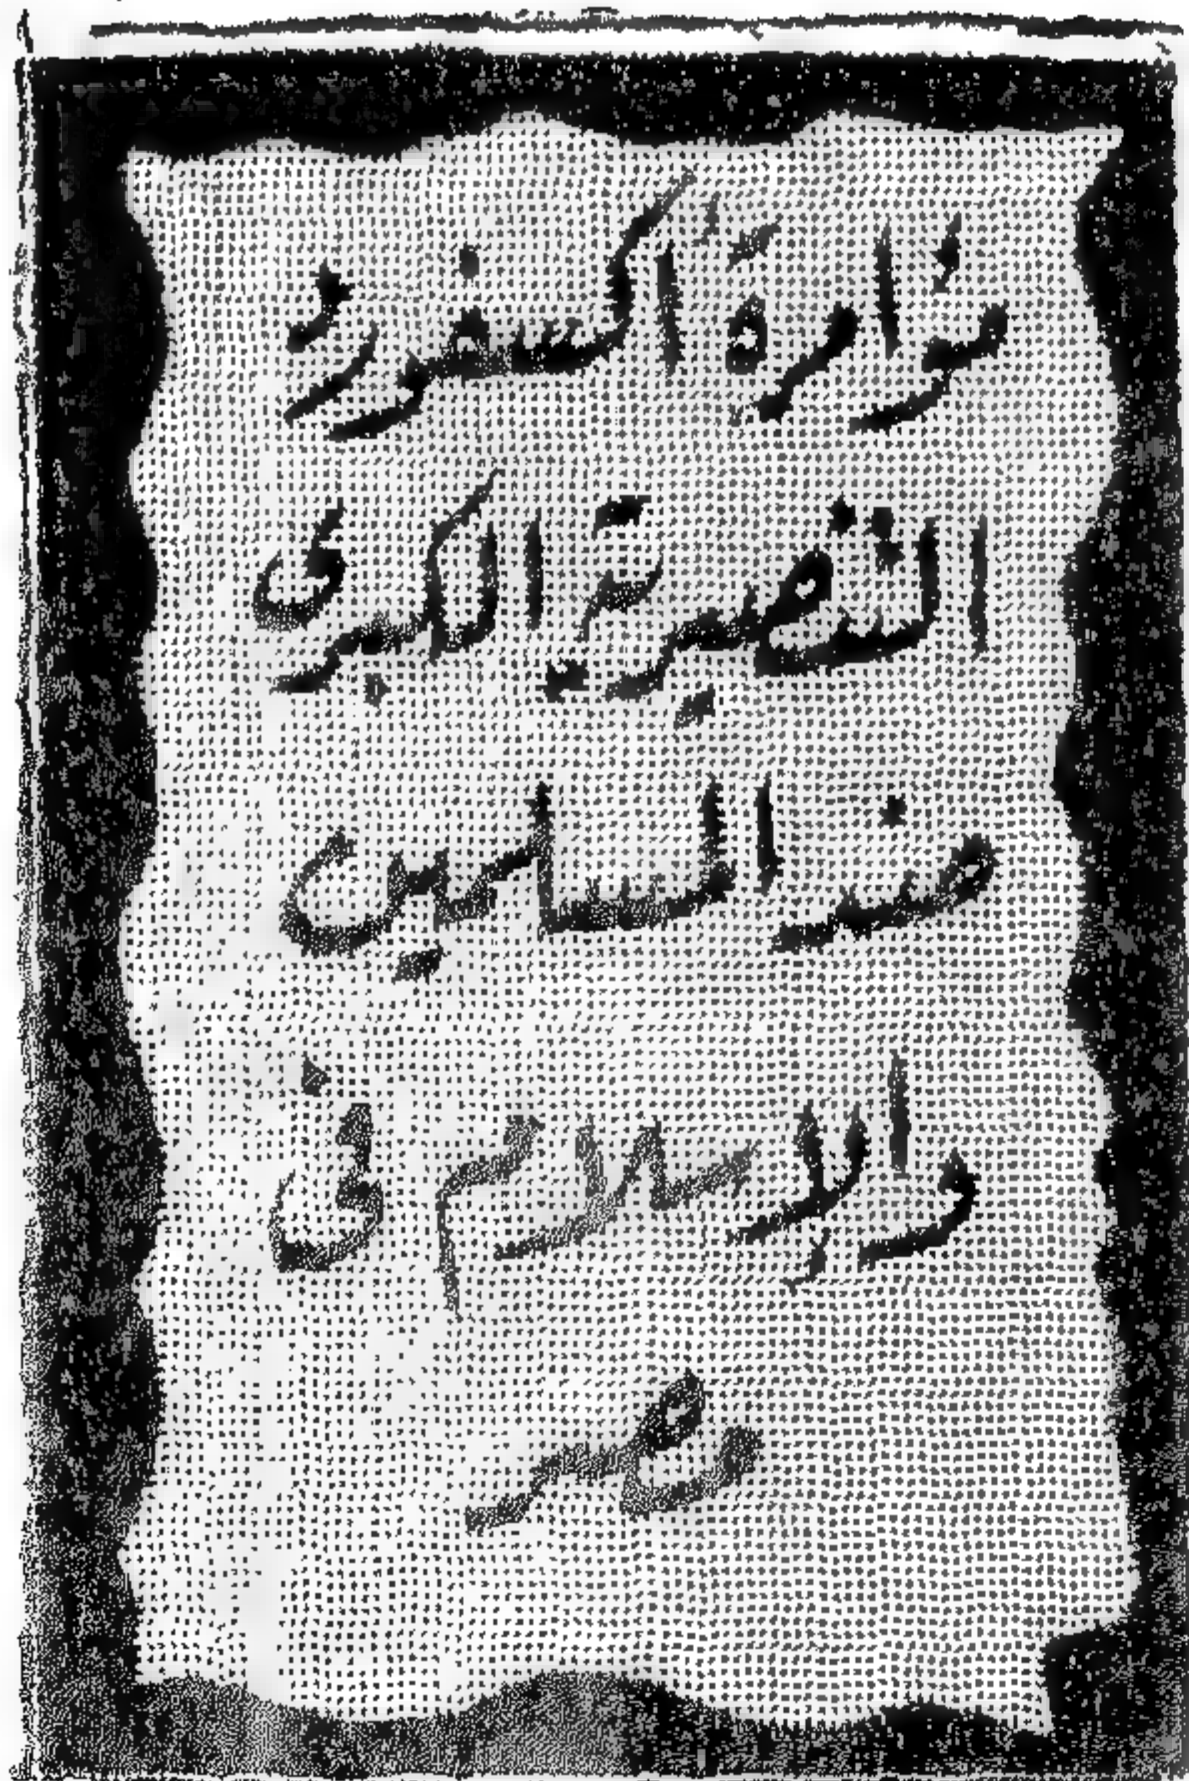 مؤامرة
التنصيرية الكبرى
ضد المسلمين
والإسلام في
مصر